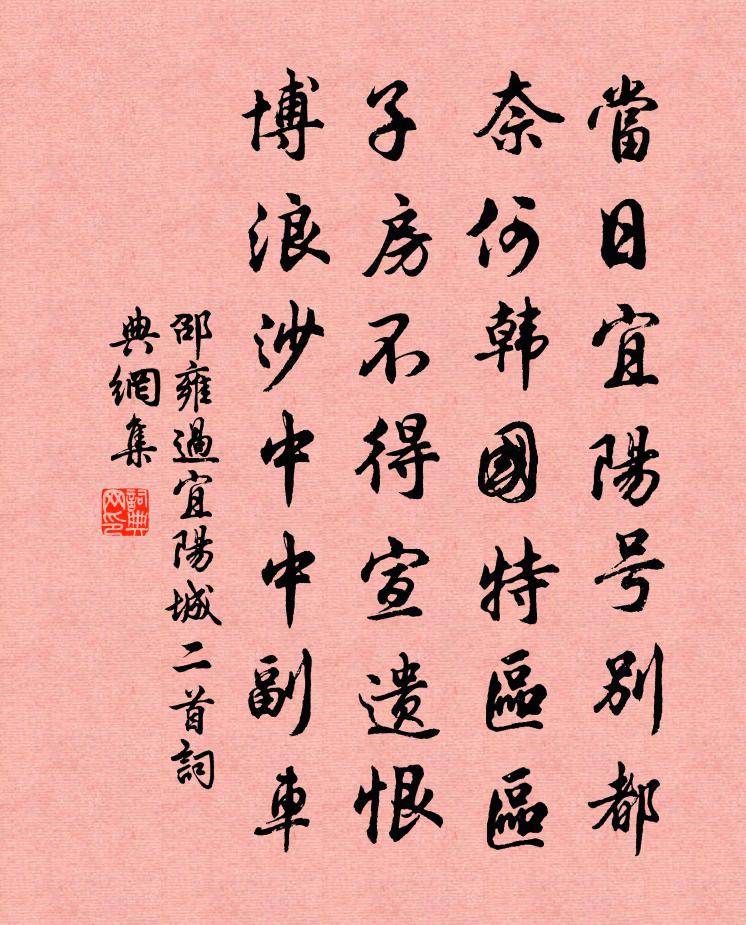 當日宜陽号別都
奈何韩國特區區
子房不得宣遗恨
博浪沙中中副車
邵雍過宜陽城二首詞
典網集
詞典
网印